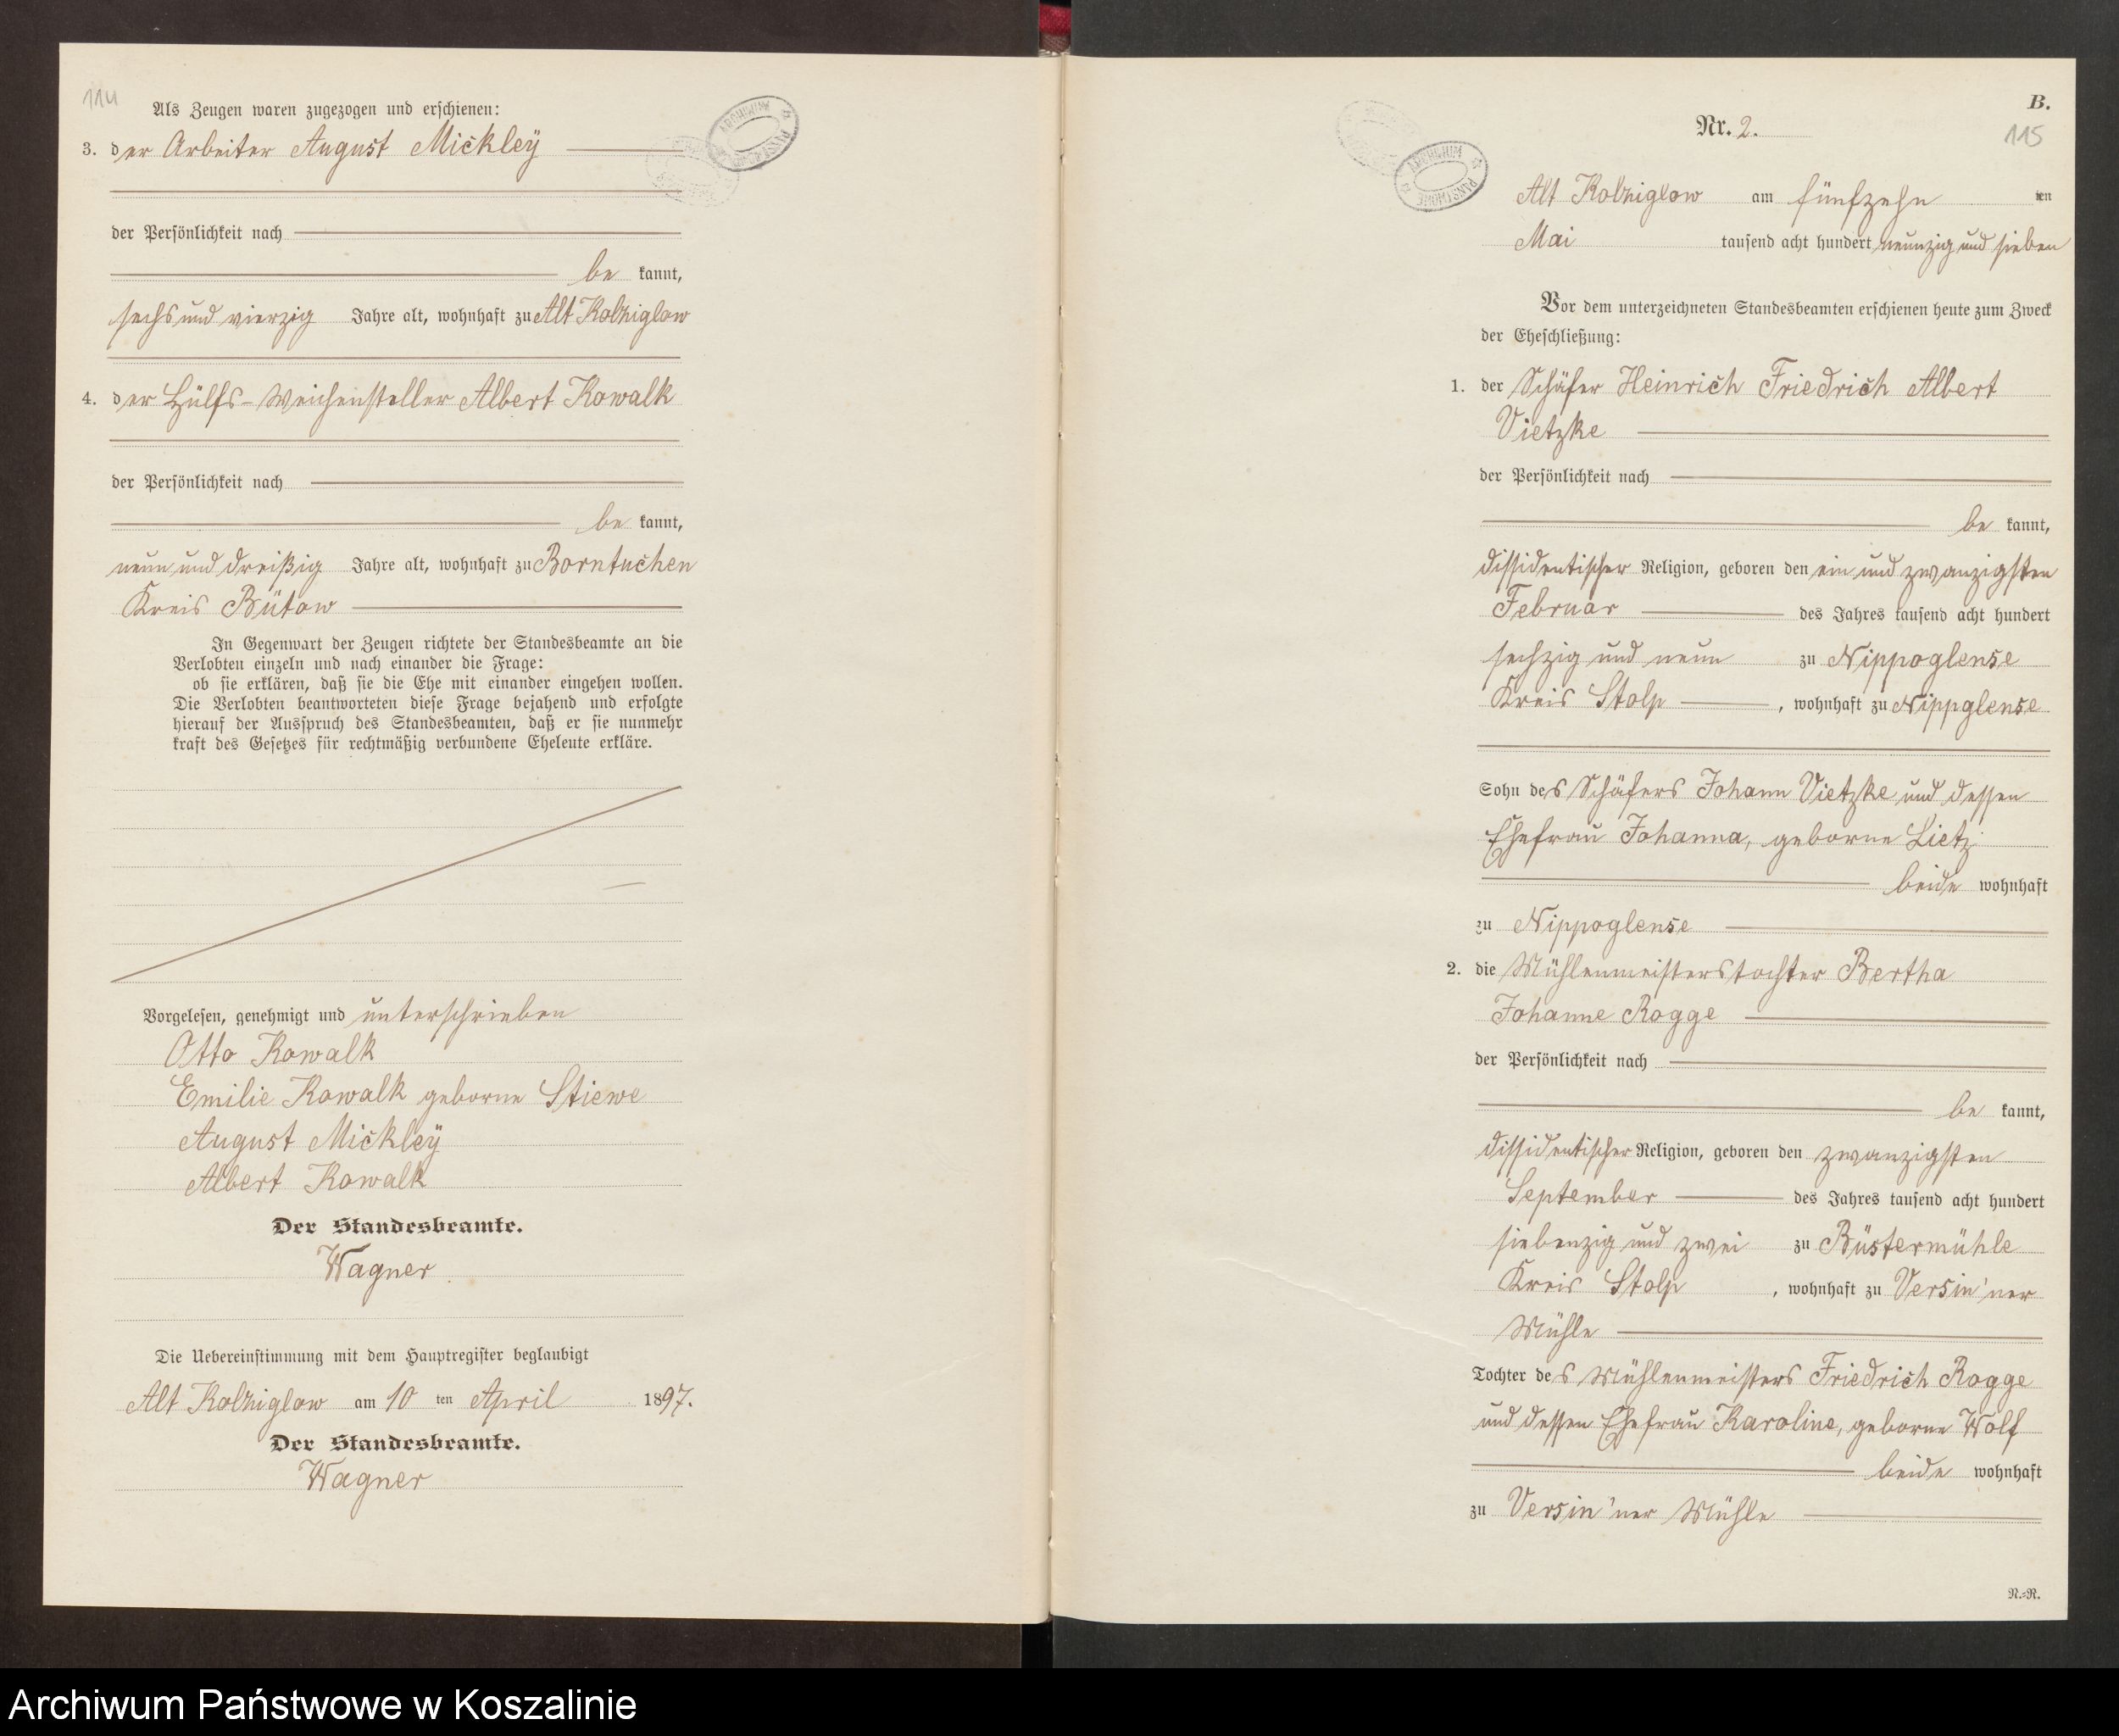 114
Als Zeugen waren zugezogen und erschienen:
3. der Arbeiter August Mickleÿ
der Persönlichkeit nach
be kannt,
sechs und vierzig Jahre alt, wohnhaft zu Alt Kolziglow
4. der Hülfs-Weichensteller Albert Kowalk
der Persönlichkeit nach
be kannt,
neun und dreißig Jahre alt, wohnhaft zu Borntuchen
Kreis Bütow
In Gegenwart der Zeugen richtete der Standesbeamte an die
Verlobten einzeln und nach einander die Frage:
ob sie erklären, daß sie die Ehe mit einander eingehen wollen.
Die Verlobten beantworteten diese Frage bejahend und erfolgte
hierauf der Ausspruch des Standesbeamten, daß er sie nunmehr
kraft des Gesetzes für rechtmäßig verbundene Eheleute erkläre.
Vorgelesen, genehmigt und unterschrieben
Otto Kowalk
Emilie Kowalk geborne Stiewe
August Mickleÿ
Albert Kowalk
Der Standesbeamte.
Wagner
Die Uebereinstimmung mit dem Hauptregister beglaubigt
Alt Kolziglow am 10 ten April 1897.
Der Standesbeamte.
Wagner
B.
Nr. 2.
115
Alt Kolziglow am fünfzehn ten
Mai tausend acht hundert neunzig und sieben
Vor dem unterzeichneten Standesbeamten erschienen heute zum Zweck
der Eheschließung:
1. der Schäfer Heinrich Friedrich Albert
Vietzke
der Persönlichkeit nach
be kannt,
dissidentischer Religion, geboren den ein und zwanzigsten
Februar des Jahres tausend acht hundert
sechzig und neun zu Nippoglense
Kreis Stolp, wohnhaft zu Nippglense
Sohn des Schäfers Johann Vietzke und dessen
Ehefrau Johanna, geborne Lietz
beide wohnhaft
zu Nippoglense
2. die Mühlenmeisterstochter Bertha
Johanne Rogge
der Persönlichkeit nach
be kannt,
dissidentischer Religion, geboren den zwanzigsten
September des Jahres tausend acht hundert
siebenzig und zwei zu Büstermühle
Kreis Stolp, wohnhaft zu Versin'ner
Mühle
Tochter des Mühlenmeisters Friedrich Rogge
und dessen Ehefrau Karoline, geborne Wolf
beide wohnhaft
zu Versin'ner Mühle
N.=R.
Archiwum Państwowe w Koszalinie